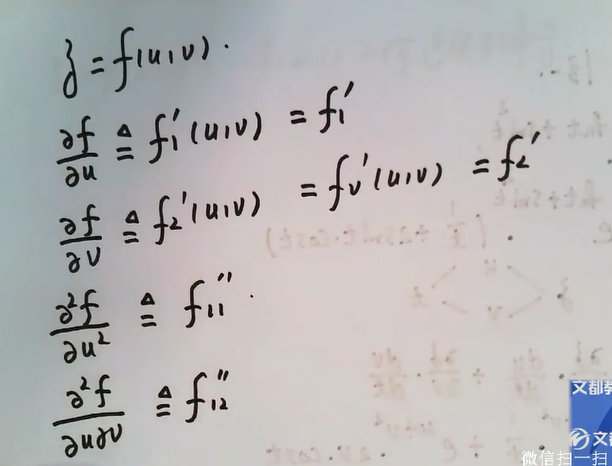 z = f(u,v).
∂f/∂u ≜ f₁′(u,v) = f₁′
∂f/∂v ≜ f₂′(u,v) = fᵥ′(u,v) = f₂′
∂²f/∂u² ≜ f₁₁″.
∂²f/∂u∂v ≜ f₁₂″
文都教
文都
微信扫一扫